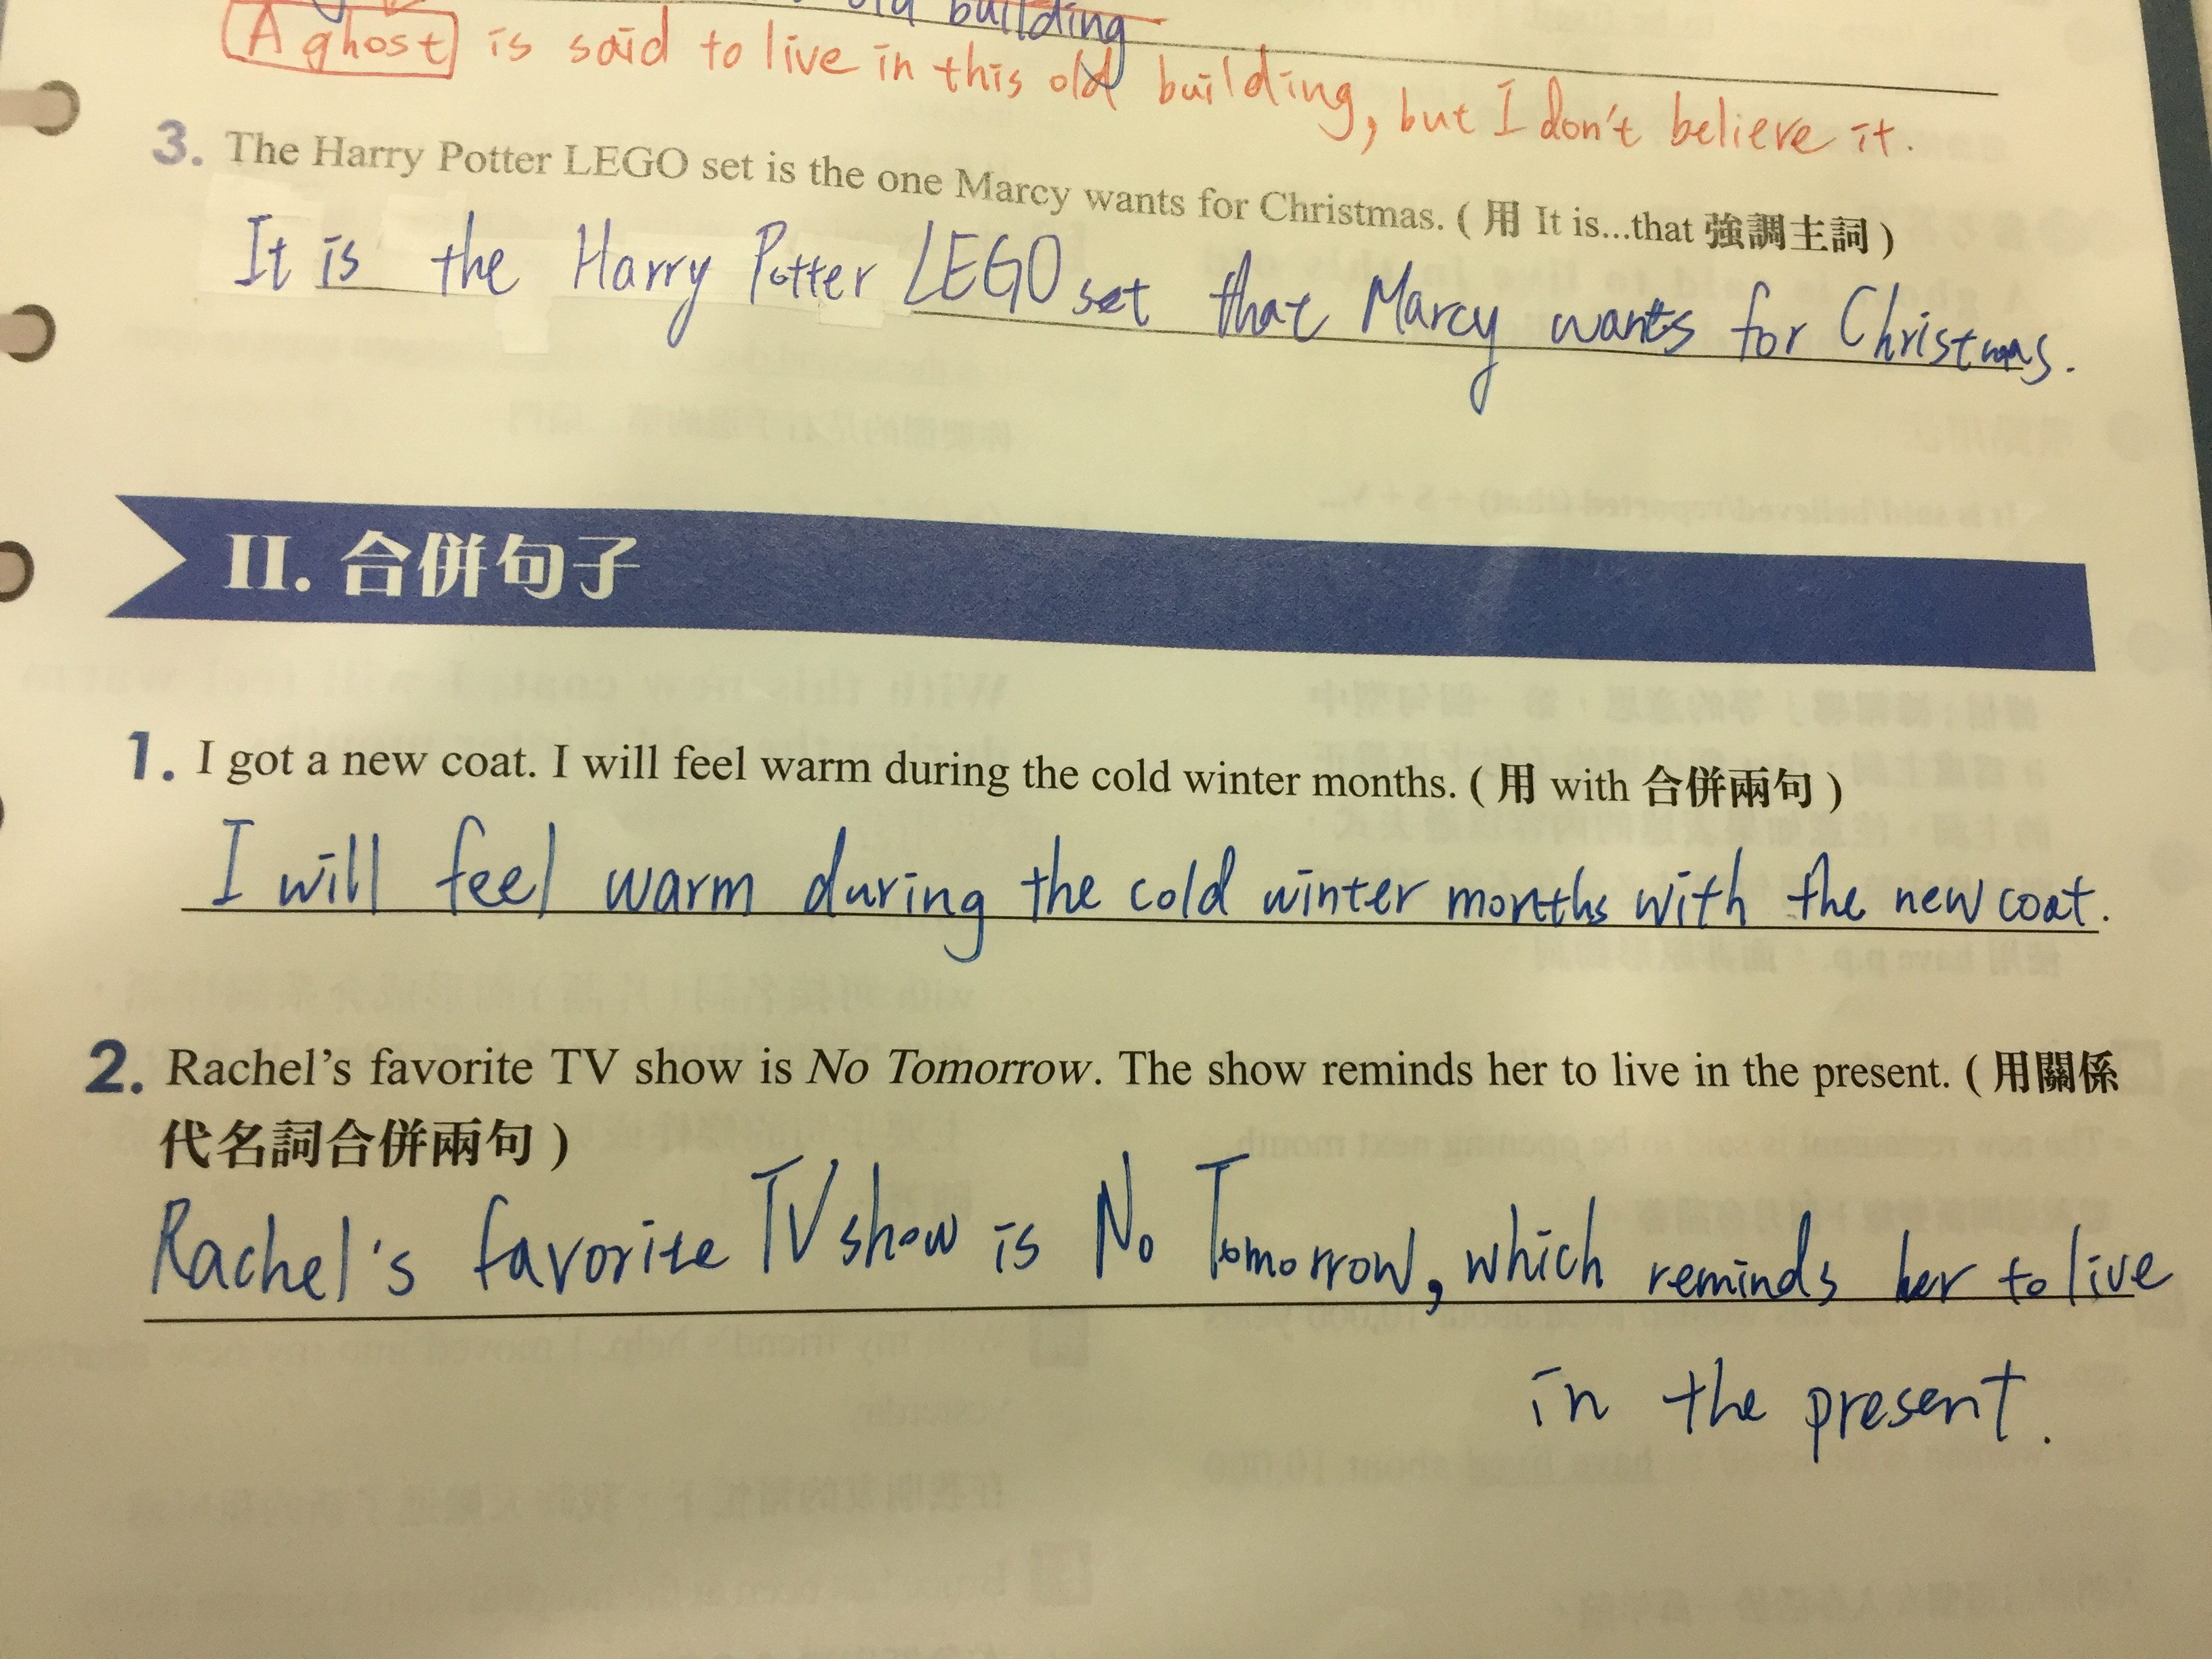 old building
A ghost is said to live in this old building, but I don't believe it.
3. The Harry Potter LEGO set is the one Marcy wants for Christmas. ( 用 It is...that 強調主詞 )
It is the Harry Potter LEGO set that Marcy wants for Christmas.
II. 合併句子
1. I got a new coat. I will feel warm during the cold winter months. ( 用 with 合併兩句 )
I will feel warm during the cold winter months with the new coat.
2. Rachel's favorite TV show is No Tomorrow. The show reminds her to live in the present. ( 用關係
代名詞合併兩句 )
Rachel's favorite TV show is No Tomorrow, which reminds her to live
in the present.